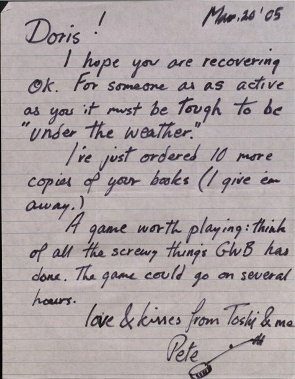 Mar. 20 '05
Doris!
I hope you are recovering
OK. For someone as as active
as you it must be tough to be
"under the weather."
I've just ordered 10 more
copies of your books (I give em
away.)
A game worth playing: think
of all the screwy things GWB has
done. The game could go on several
hours.
love & kisses from Toshi & me
Pete